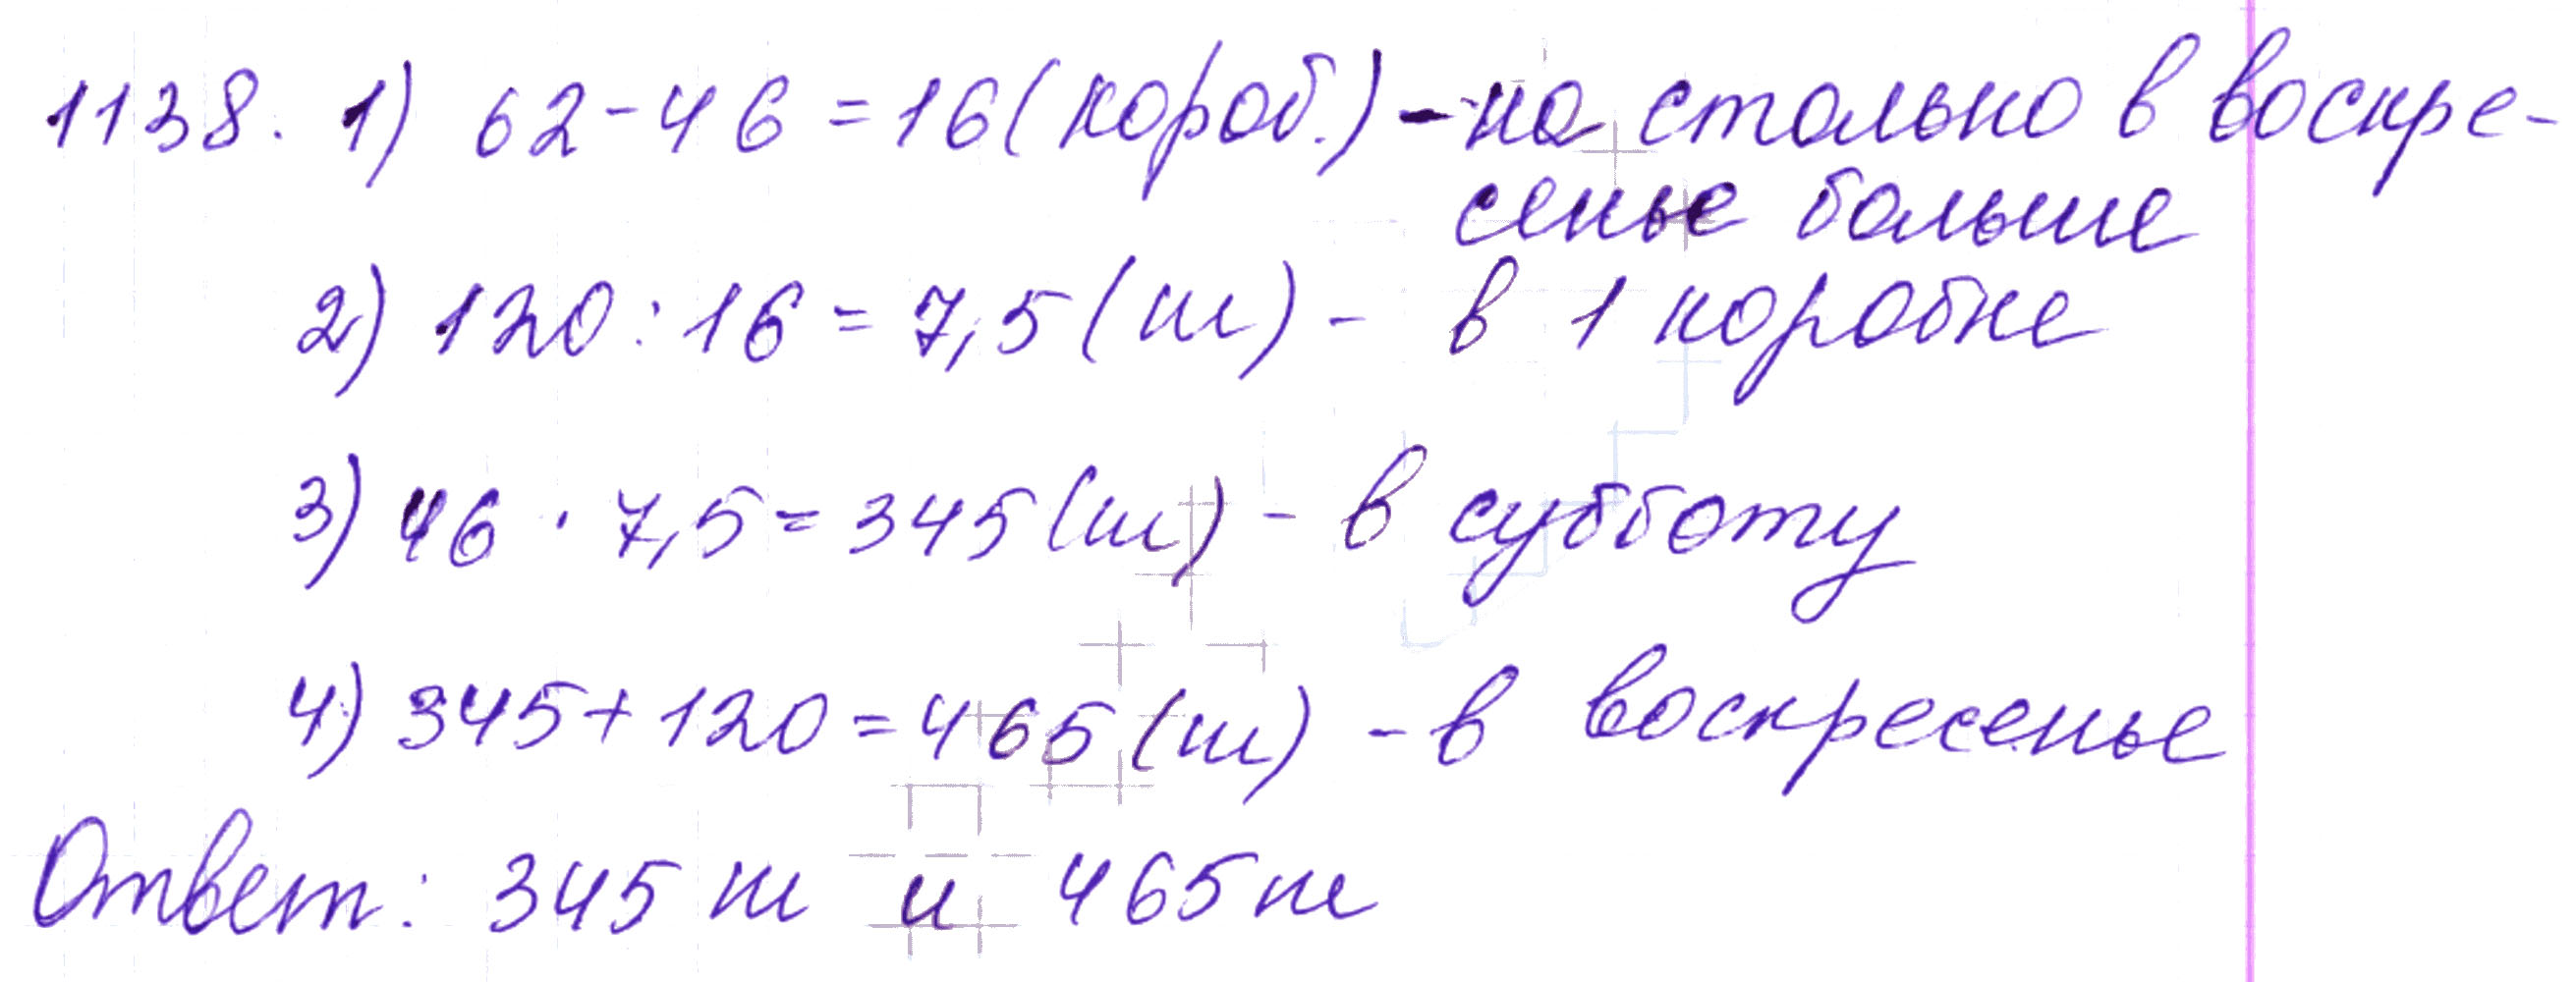 1138. 1) 62-46=16(короб.)-на столько в воскре-
сенье больше
2) 120:16=7,5(ш)- в 1 коробке
3) 46·7,5=345(ш)- в субботу
4) 345+120=465(ш) -в воскресенье
Ответ: 345 ш и 465 ш